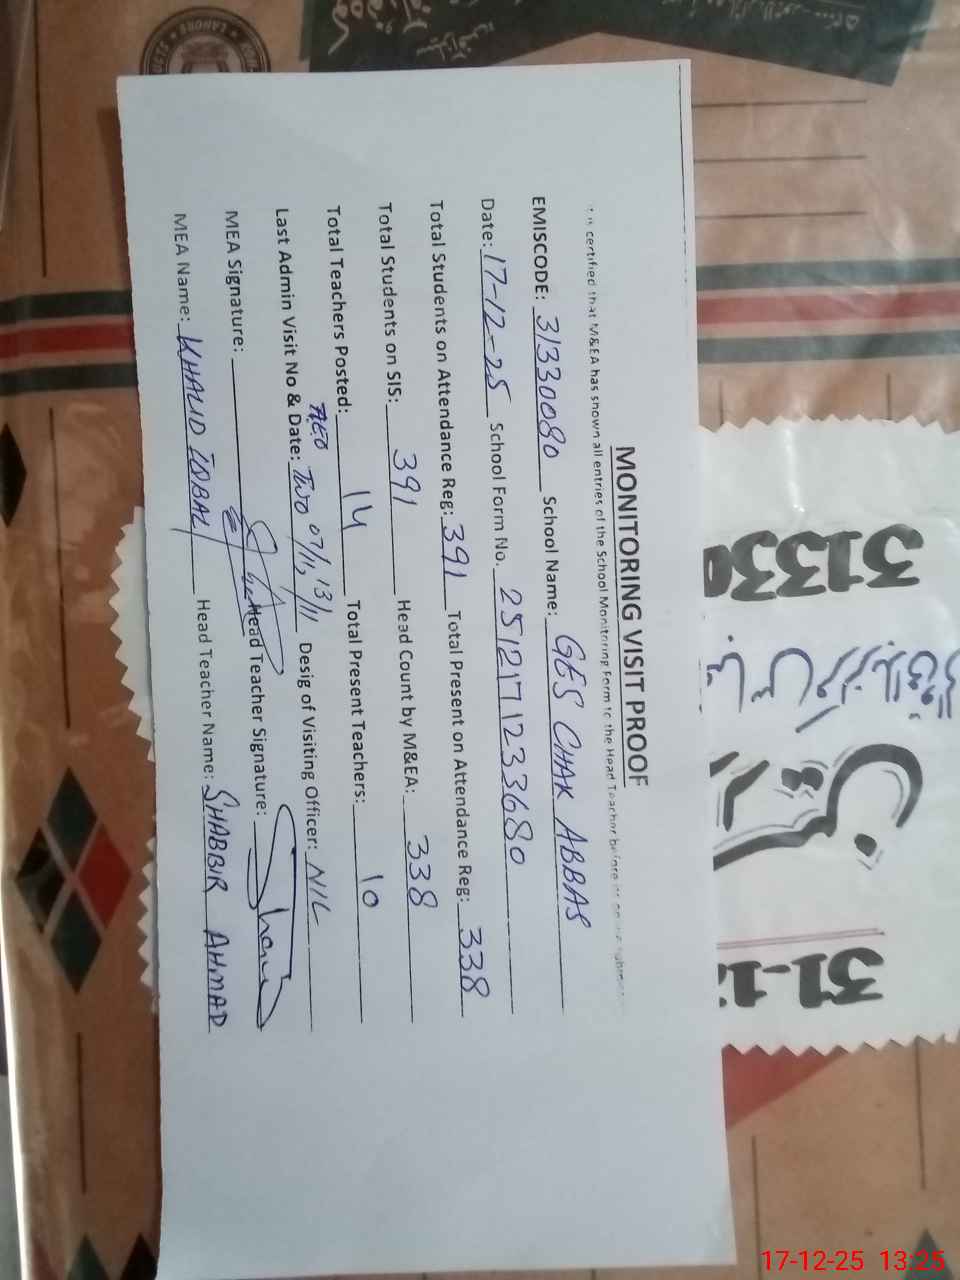 MONITORING VISIT PROOF
certified that M&EA has shown all entries of the School Monitoring Form to the Head Teacher before
EMISCODE: 31330080 School Name: GES CHAK ABBAS
Date: 17-12-25 School Form No. 2512171233680
Total Students on Attendance Reg: 391 Total Present on Attendance Reg: 338
Total Students on SIS: 391 Head Count by M&EA: 338
Total Teachers Posted: 14 Total Present Teachers: 10
AEO
Last Admin Visit No & Date: Two 07/11, 13/11 Desig of Visiting Officer: NIL
MEA Signature: Head Teacher Signature:
MEA Name: KHALID IQBAL Head Teacher Name: SHABBIR AHMAD
3133
31-1
LAHORE
17-12-25 13:25